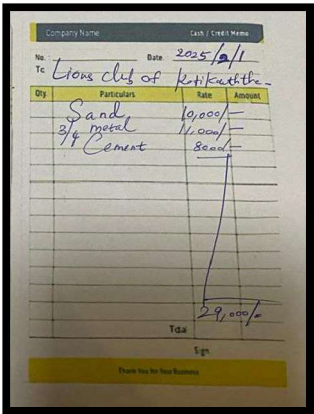 Company Name Cash / Credit Memo
No. : Date 2025/2/1
To Lions club of
Qty. Particulars Rate Amount
Sand 10,000/-
3/4 metal 11,000/-
Cement 8000/-
29,000/-
Total
Sign
Thank You for Your Business